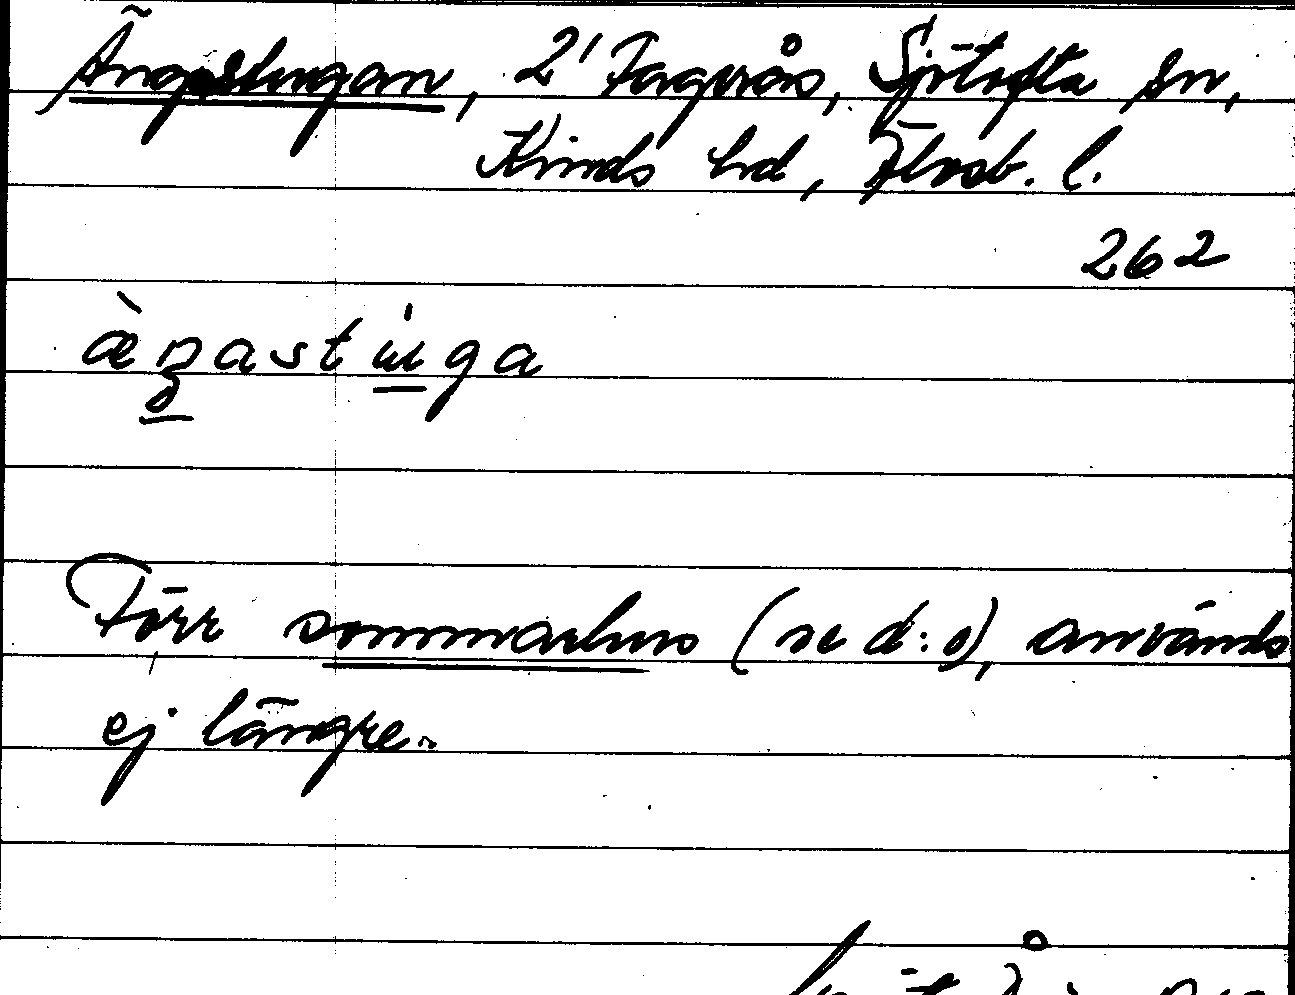 Ängastugan, 2' Fagerås, Sjötofta sn,
Kinds hd, Älvsb. l.
262
Förr sommarhus (se d:o), används
ej längre.